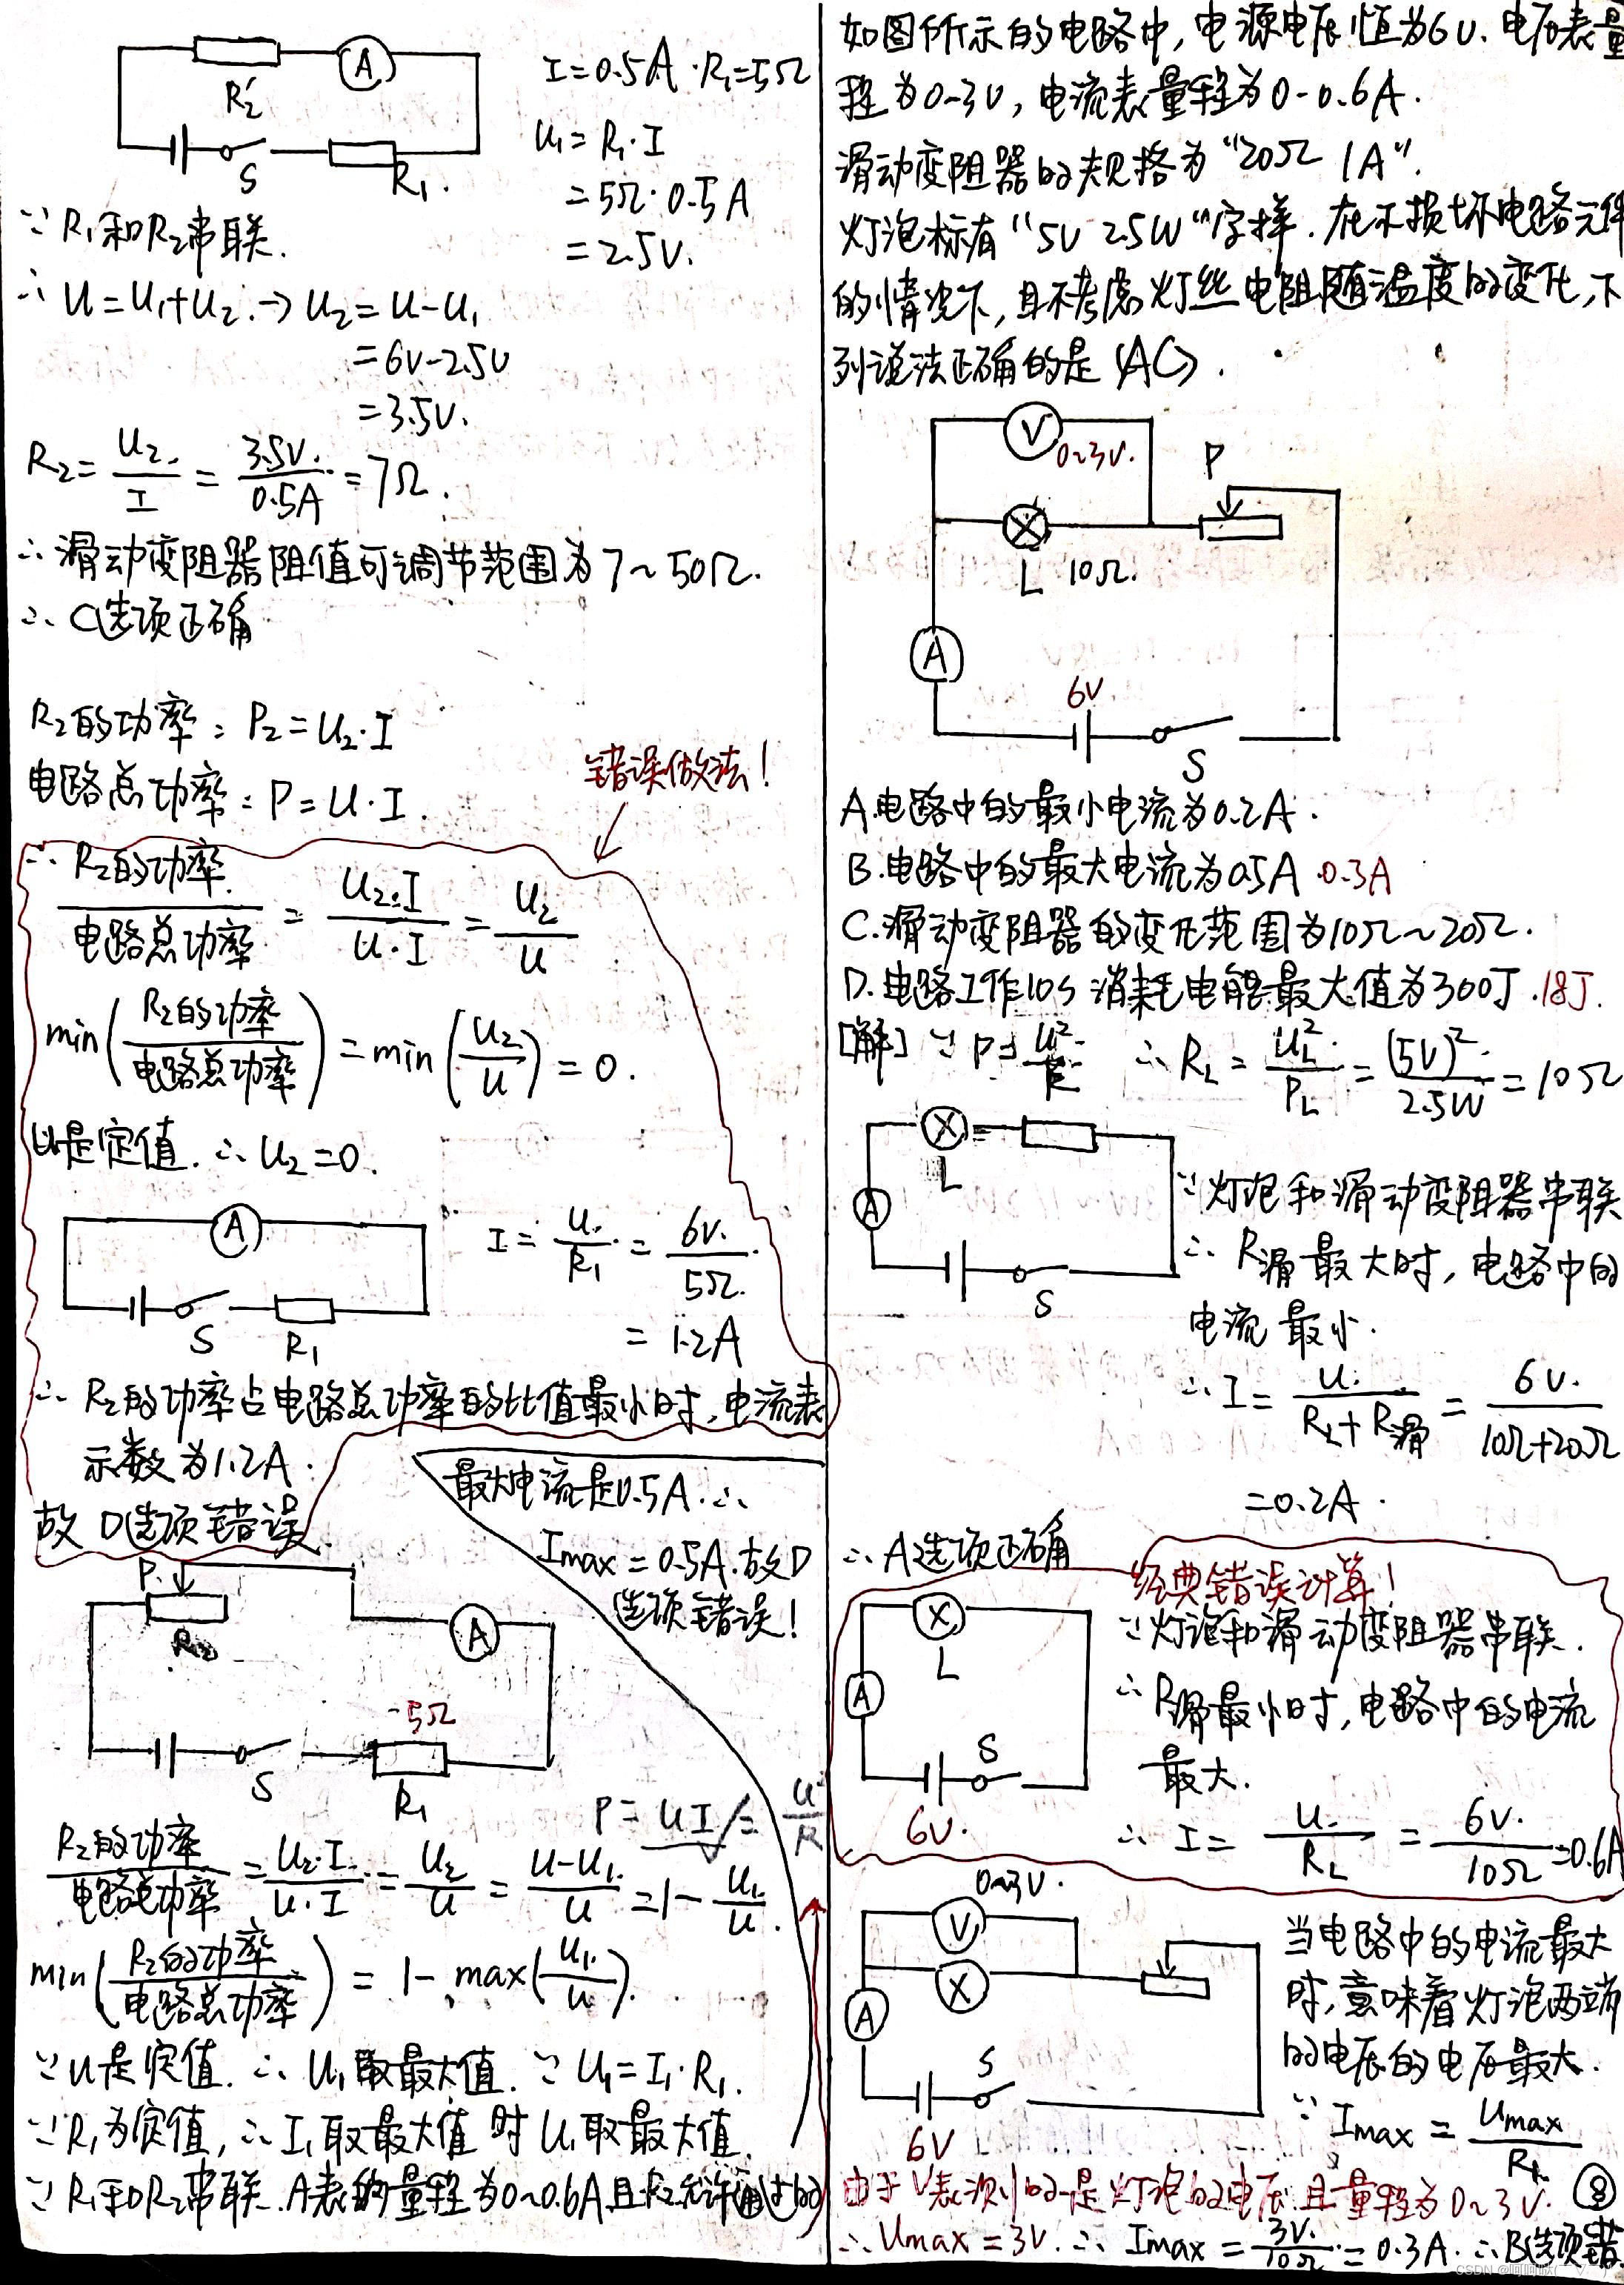 R₂
A
S
R₁.
I=0.5A·R₁=5Ω
U₁=R₁·I
=5Ω·0.5A
=2.5V.
∵R₁和R₂串联.
∴U=U₁+U₂.→U₂=U-U₁
=6V-2.5V
=3.5V.
R₂=U₂/I=3.5V/0.5A=7Ω.
∴滑动变阻器阻值可调节范围为7~50Ω.
∴C选项正确
R₂的功率:P₂=U₂·I
电路总功率:P=U·I.
错误做法!
∴R₂的功率/电路总功率=U₂·I/U·I=U₂/U
min(R₂的功率/电路总功率)=min(U₂/U)=0.
U是定值.∴U₂=0.
A
S
R₁
I=U/R₁=6V/5Ω.
=1.2A
∴R₂的功率占电路总功率的比值最小时,电流表
示数为1.2A.
故D选项错误.
最大电流是0.5A.∴
Imax=0.5A.故D
选项错误!
P
R₂
A
S
5Ω
R₁
P=UI=U²/R
R₂的功率/电路总功率=U₂·I/U·I=U₂/U=U-U₁/U=1-U₁/U.
min(R₂的功率/电路总功率)=1-max(U₁/U).
∵U是定值.∴U₁取最大值.∵U₁=I₁·R₁.
∵R₁为定值,∴I₁取最大值时U₁取最大值.
∵R₁和R₂串联.A表的量程为0~0.6A且R₂允许通过的
如图所示的电路中,电源电压恒为6V.电压表量
程为0-3V,电流表量程为0-0.6A.
滑动变阻器的规格为"20Ω 1A".
灯泡标有"5V 2.5W"字样.在不损坏电路元件
的情况下,且不考虑灯丝电阻随温度的变化,下
列说法正确的是(AC).
V
0~3V.
P
L 10Ω.
A
6V
S
A.电路中的最小电流为0.2A.
B.电路中的最大电流为0.5A 0.3A
C.滑动变阻器的变化范围为10Ω~20Ω.
D.电路工作10s消耗电能最大值为300J.18J.
[解]∵P=U²/R ∴R_L=U_L²/P_L=(5V)²/2.5W=10Ω
L
A
S
∵灯泡和滑动变阻器串联
∴R滑最大时,电路中的
电流最小.
∴I=U/R_L+R滑=6V/10Ω+20Ω
=0.2A.
∴A选项正确
经典错误计算!
L
A
S
6V.
∵灯泡和滑动变阻器串联.
∴R滑最小时,电路中的电流
最大.
∴I=U/R_L=6V/10Ω=0.6A
0~3V.
V
A
S
6V
当电路中的电流最大
时,意味着灯泡两端
的电压的电压最大.
∵Imax=Umax/R_L
由于V表测的是灯泡的电压且量程为0~3V.
⑧
∴Umax=3V.∴Imax=3V/10Ω=0.3A.∴B选项错.